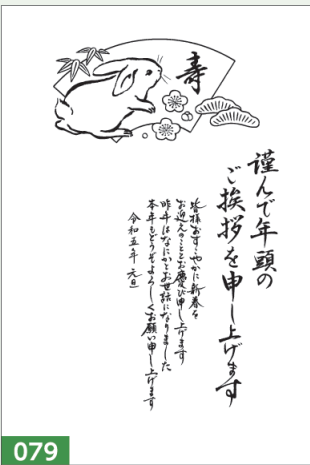 寿
謹んで年頭の
ご挨拶を申し上げます
皆様おすこやかに新春を
お迎えのこととお慶び申し上げます
昨年はなにかとお世話になりました
本年もどうぞよろしくお願い申し上げます
令和五年 元旦
079